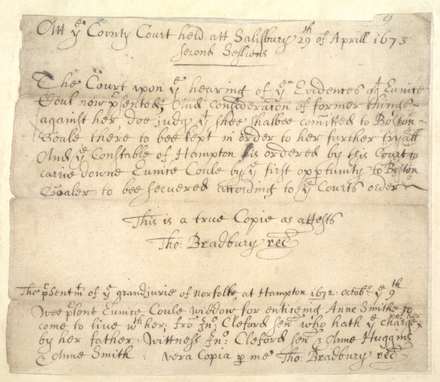 9
Att yᵉ County Court held att Salisbury 29ᵗʰ of Aprill 1673
second Sessions
The Court upon yᵉ hearing of yᵉ Evidences agˢᵗ Eunice
Coul now pʳsented: And consideracion of former things
against her doe judg yᵗ shee shalbee comitted to Boston
Goale there to bee kept in order to her further tryall
And yᵉ Constable of Hampton is ordered by this Court to
carie downe Eunice Coule by yᵉ first oppʳtunity to Boston
Goaler to bee secured according to yᵉ Courts order
This is a true Copie as attests
Tho: Bradbury recᵈ
The pʳsentmᵗ of yᵉ grandjurie of Norfolke, at Hampton 1672. octobʳ yᵉ 9ᵗʰ
Wee pʳsent Eunice Coule widdow for enticing Anne Smith to
come to live wᵗʰ her; frō Jnᵒ Cleford senʳ who hath yᵉ charge
of her
by her father. Witness Jnᵒ Cleford senʳ & Anne Huggins
& Anne Smith: vera Copia p me Tho: Bradbury recᵈ